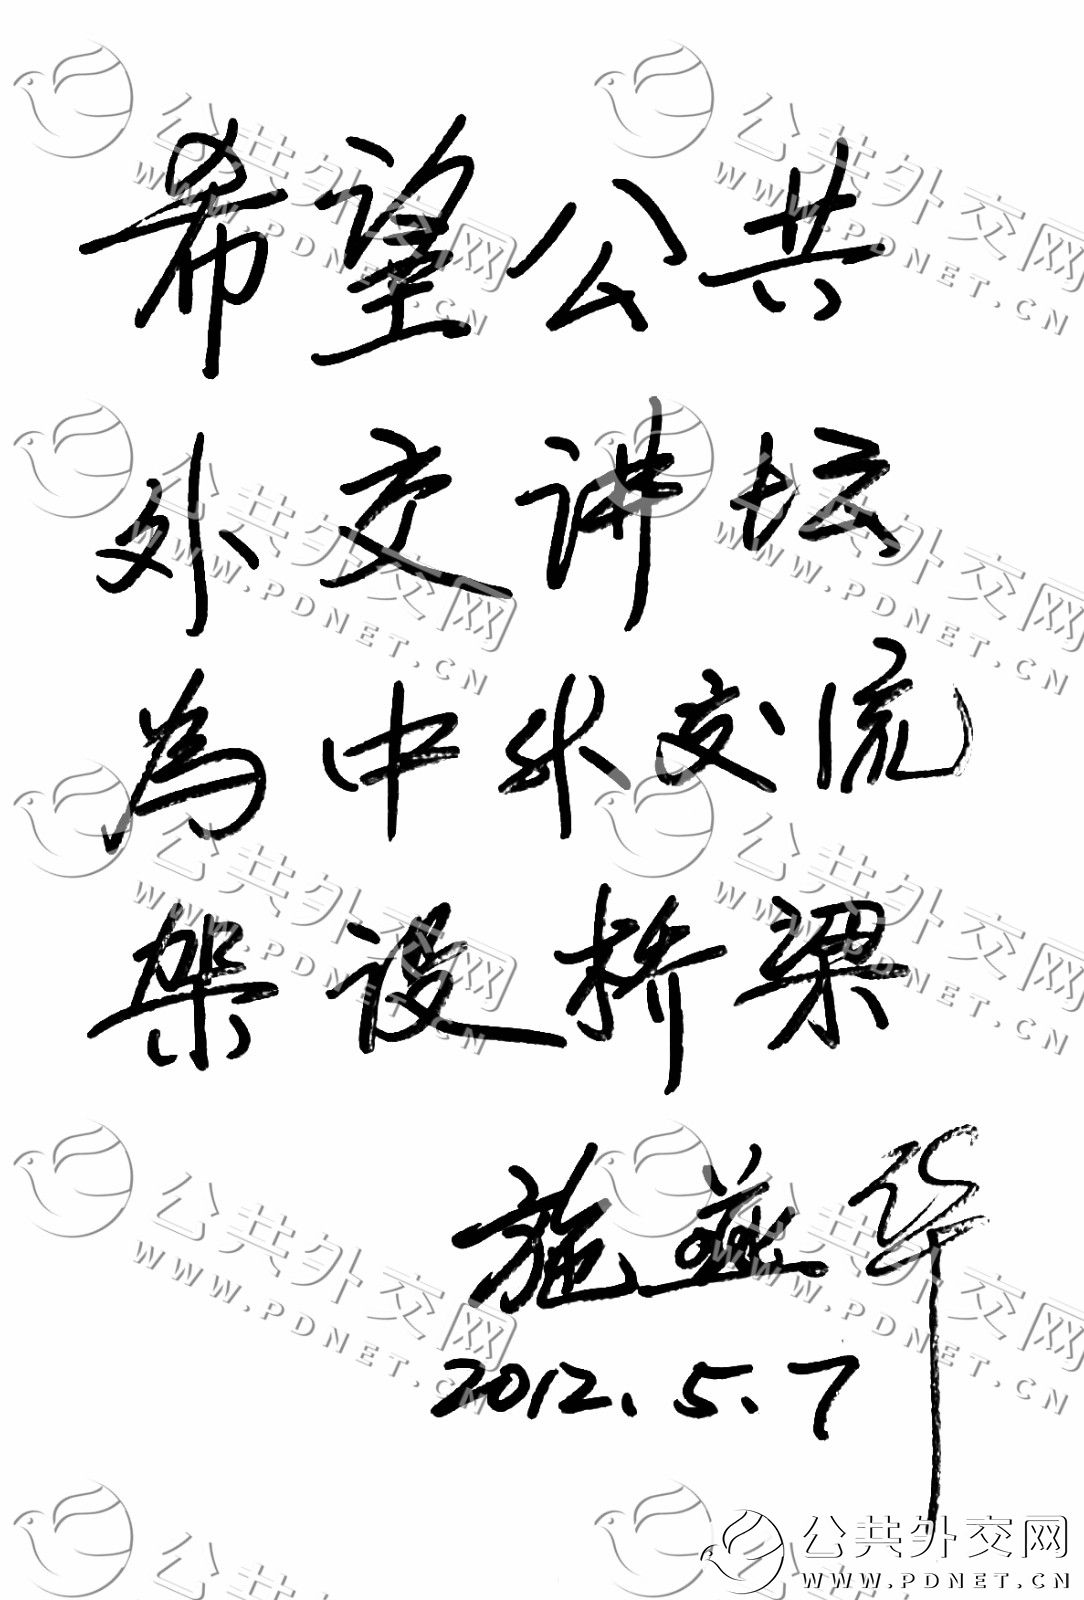 希望公共
外交讲坛
為中外交流
架设桥梁
施燕华
2012.5.7
公共外交网
WWW.PDNET.CN